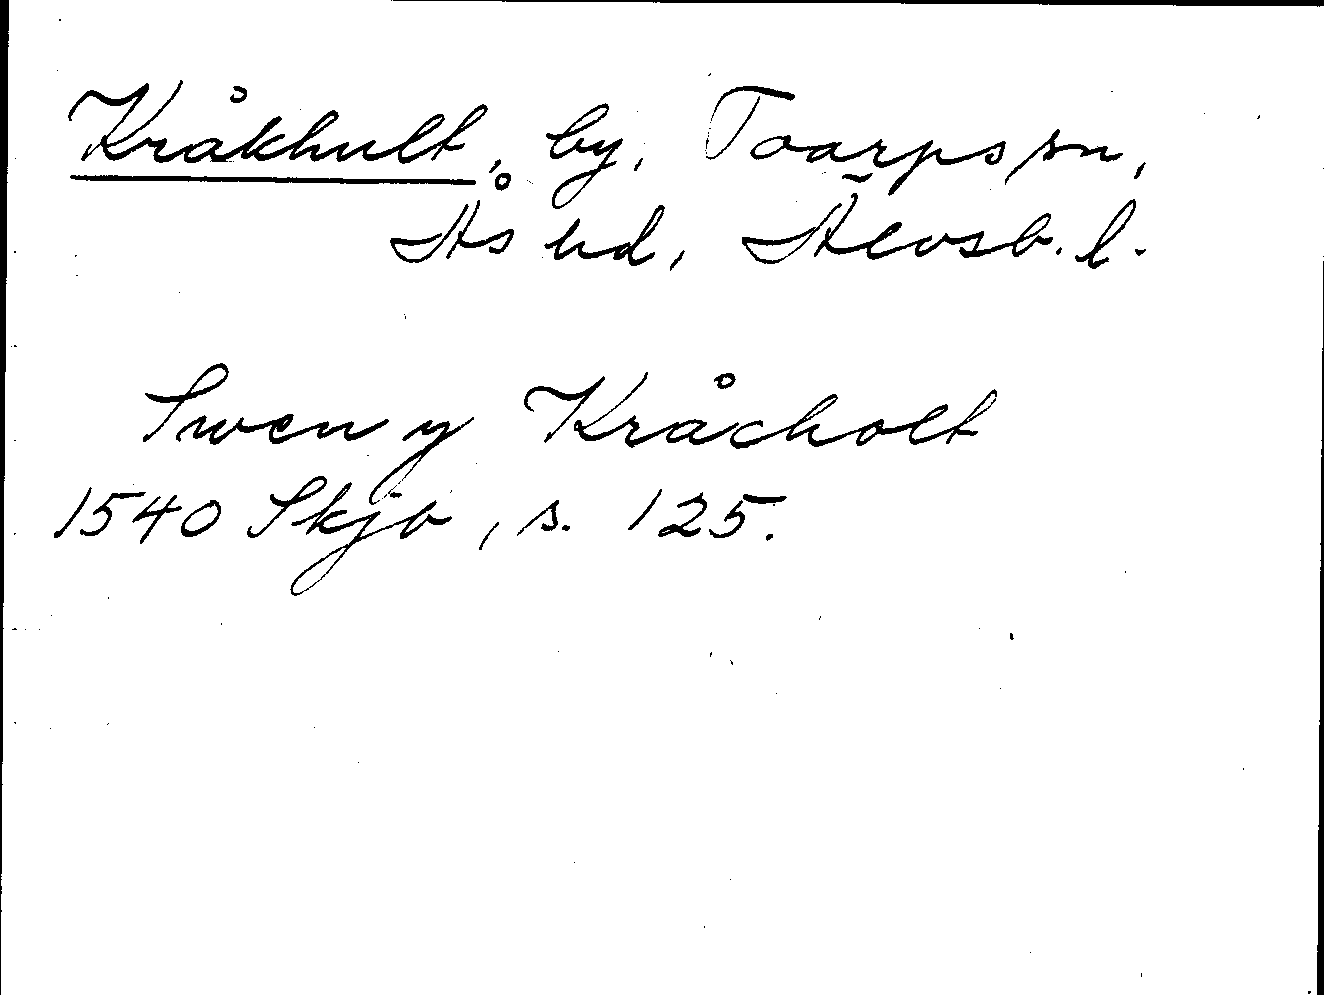 Kråkhult, by, Toarps sn,
Ås hd, Älvsb. l.
Swen y Kråcholt
1540 Skjb, s. 125.